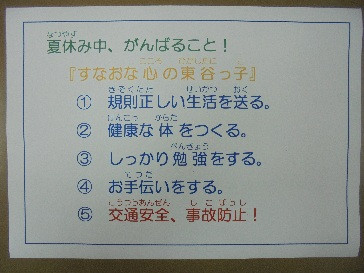 なつやす
夏休み中、がんばること！
こころ ひがしだに
『すなおな心の東谷っ子』
きそくただ せいかつ おく
① 規則正しい生活を送る。
けんこう からだ
② 健康な体をつくる。
べんきょう
③ しっかり勉強をする。
てつだ
④ お手伝いをする。
こうつうあんぜん じこぼうし
⑤ 交通安全、事故防止！